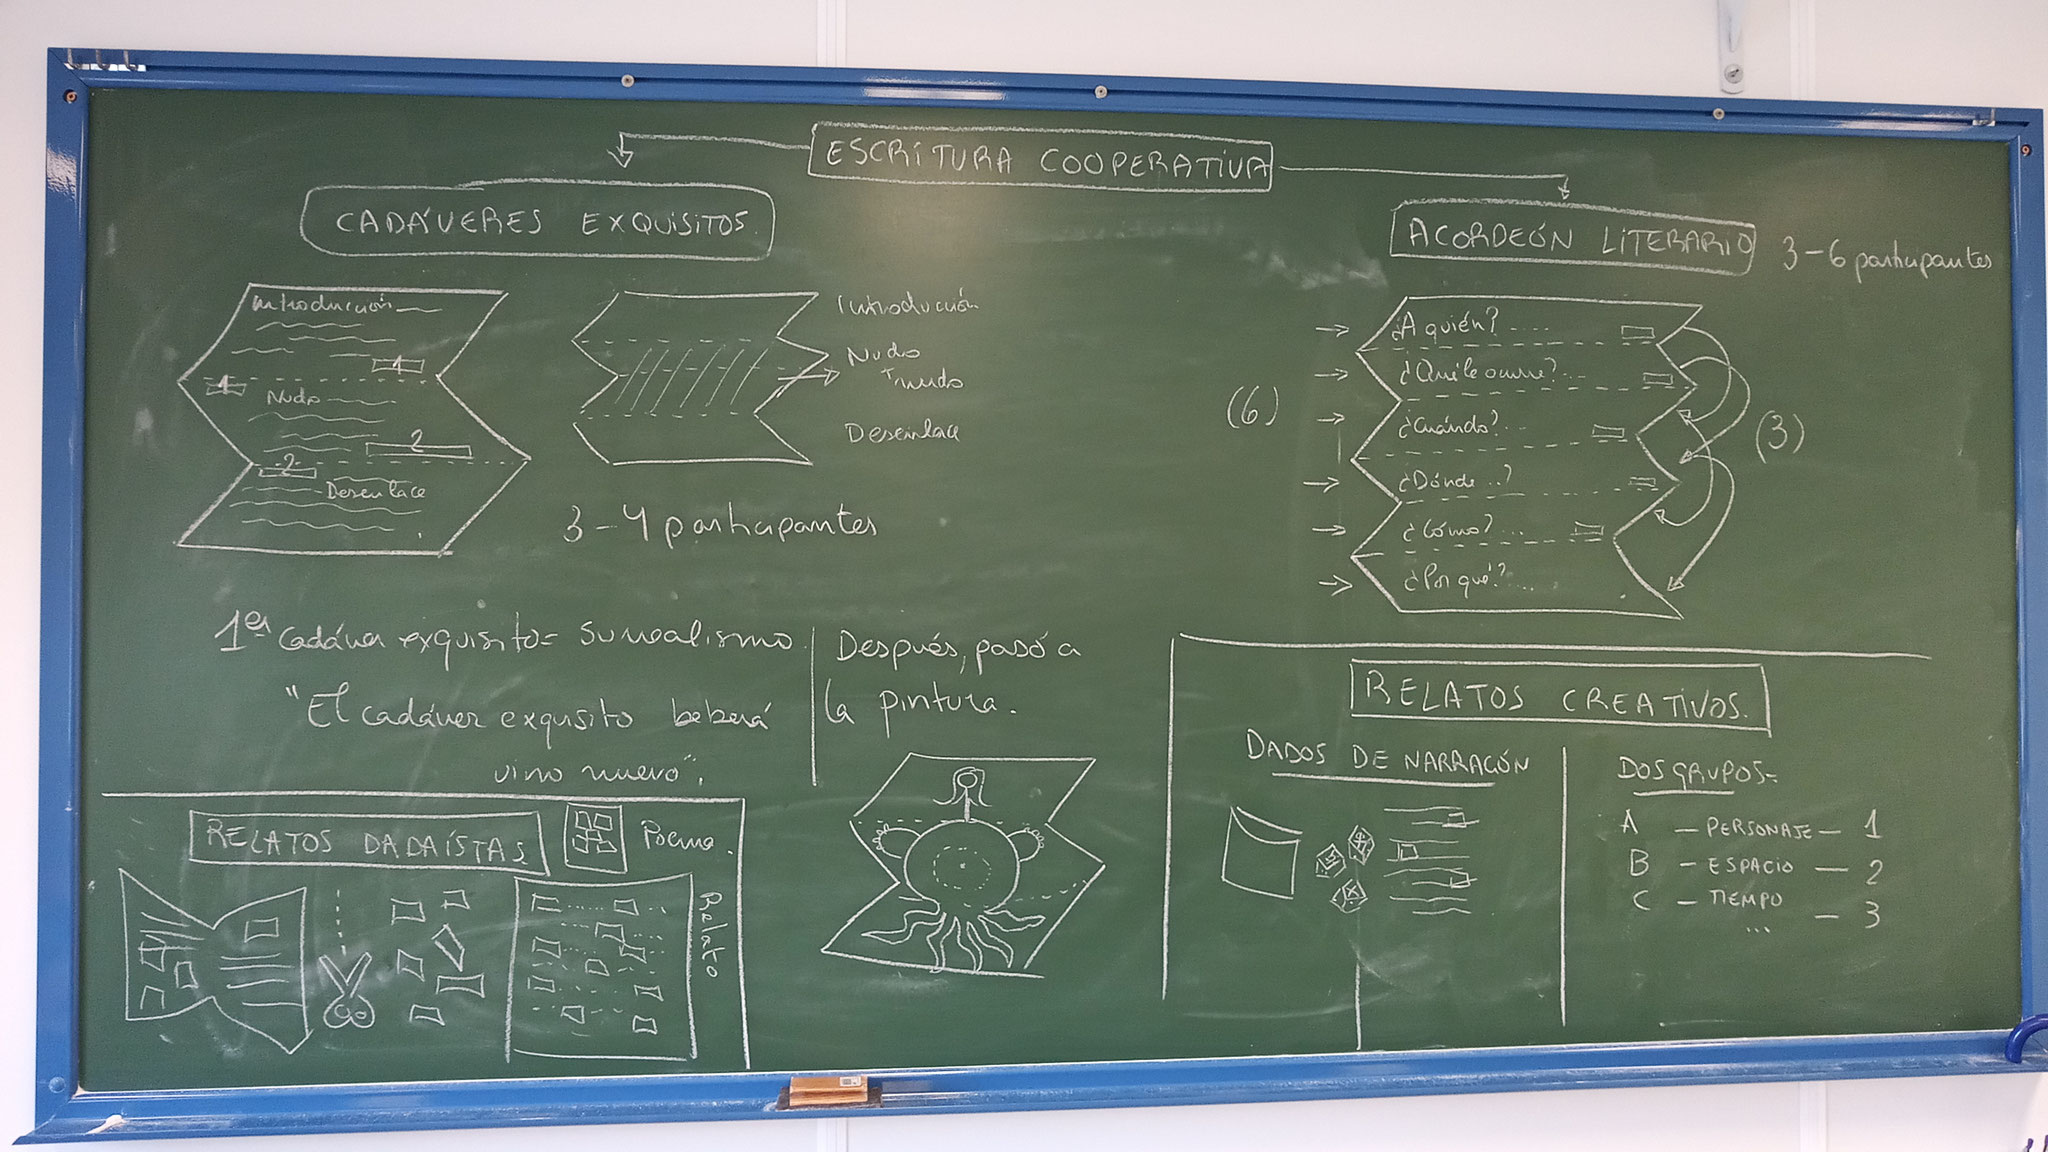 ESCRITURA COOPERATIVA
CADÁVERES EXQUISITOS.
Introducción
1
1
Nudo
2
2
Desenlace
Introducción
Nudo
+ nudo
Desenlace
3-4 participantes
1er cadáver exquisito= surrealismo.
"El cadáver exquisito beberá
vino nuevo".
Después, pasó a
la pintura.
RELATOS DADAÍSTAS
Poema.
Relato
ACORDEÓN LITERARIO
3-6 participantes
¿A quién? ....
¿Qué le ocurre?...
¿Cuándo?...
¿Dónde..?
¿Cómo?...
¿Por qué?....
(6)
(3)
RELATOS CREATIVOS.
DADOS DE NARRACIÓN
DOS GRUPOS=
A - PERSONAJE - 1
B - ESPACIO - 2
C - TIEMPO - 3
...